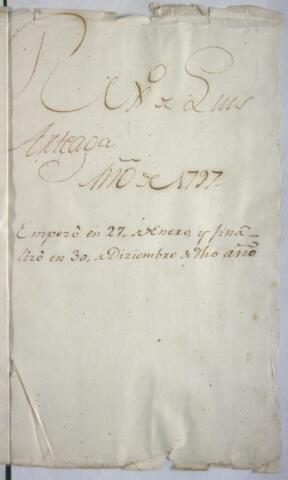 R. Xº de Luis
Arteaga
Año de 1797.
Empezò en 27. de Enero, y fina-
lizò en 30. de Diziembre de dho año